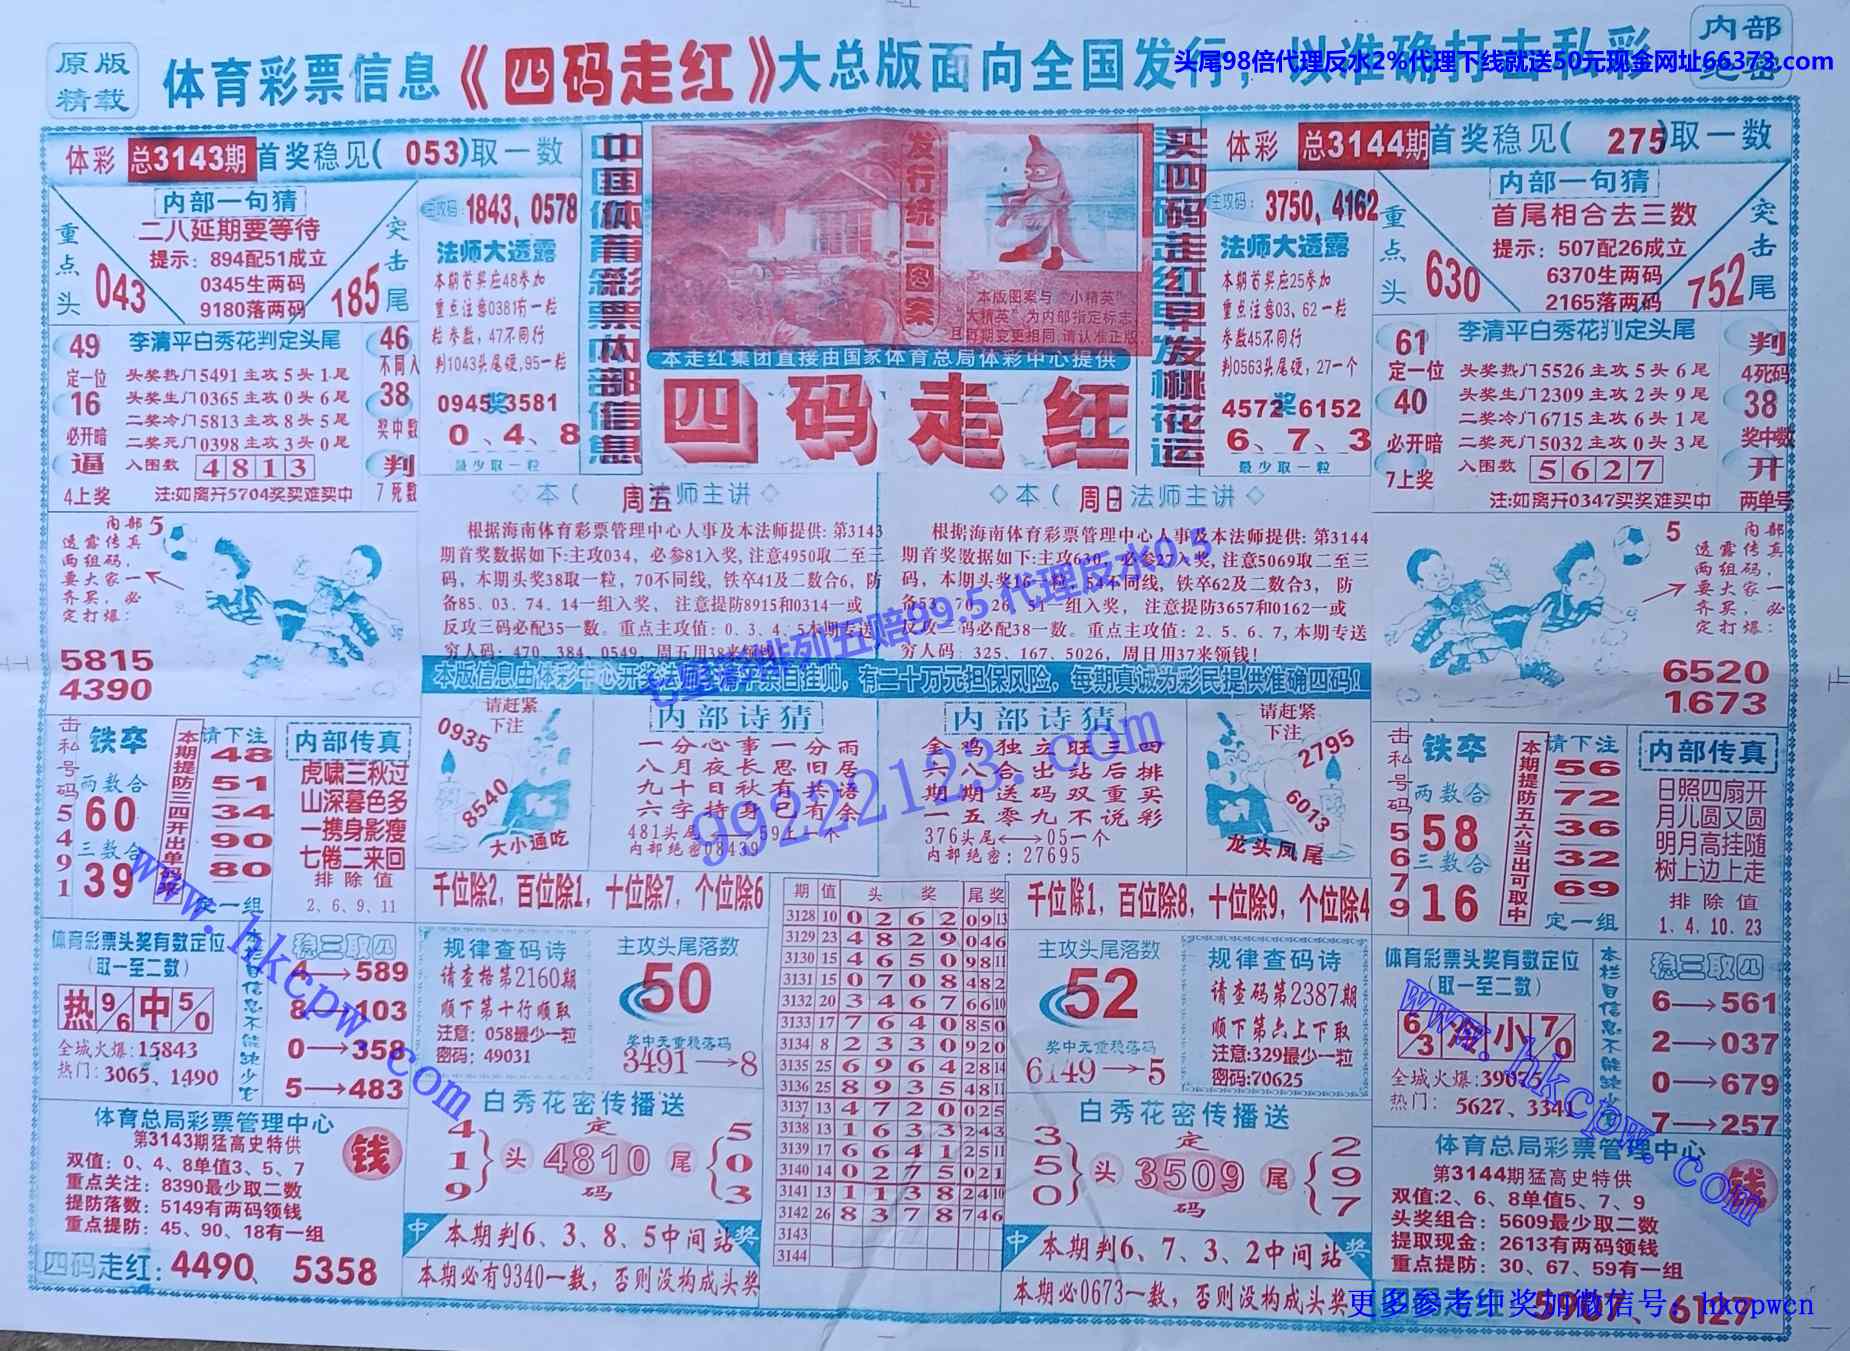 原版
精载
体育彩票信息《四码走红》大总版面向全国发行，以准确打击私彩
内部
头尾98倍代理反水2%代理下线就送50元现金网址66373.com
体彩 总3143期 首奖稳见( 053)取一数
内部一句猜
二八延期要等待
提示：894配51成立
0345生两码
9180落两码
重点头
043
突击尾
185
主攻码：1843、0578
法师大透露
本期首奖应48参加
重点注意0381有一粒
粒参数，47不同行
判1043头尾硬,95一粒
0945奖3581
0、4、8
最少取一粒
中国体育彩票内部信息
发行统一图案
本版图案与“小精英”
“大精英”为内部指定标志
且每期变更相同,请认准正版
本走红集团直接由国家体育总局体彩中心提供
四码走红
买四码走红早发桃花运
体彩 总3144期 首奖稳见( 275)取一数
主攻码：3750、4162
法师大透露
本期首奖应25参加
重点注意03、62一粒
参数45不同行
判0563头尾硬，27一个
4572奖6152
6、7、3
最少取一粒
内部一句猜
首尾相合去三数
提示：507配26成立
6370生两码
2165落两码
重点头
630
突击尾
752
49
定一位
16
必开暗
逼
4上奖
李清平白秀花判定头尾
头奖热门5491主攻5头1尾
头奖生门0365主攻0头6尾
二奖冷门5813主攻8头5尾
二奖死门0398主攻3头0尾
入围数 4813
注:如离开5704奖买难买中
46
不同入
38
奖中数
判
7死数
61
定一位
40
必开暗
7上奖
李清平白秀花判定头尾
头奖热门5526主攻5头6尾
头奖生门2309主攻2头9尾
二奖冷门6715主攻6头1尾
二奖死门5032主攻0头3尾
入围数 5627
注:如离开0347买奖难买中
判
4死码
38
奖中数
开
两单号
本（ 周五法师主讲
根据海南体育彩票管理中心人事及本法师提供: 第3143
期首奖数据如下:主攻034，必参81入奖, 注意4950取二至三
码，本期头奖38取一粒，70不同线，铁卒41及二数合6，防
备85、03、74、14一组入奖，注意提防8915和0314一或
反攻三码必配35一数。重点主攻值: 0、3、4、5本期专送
穷人码: 470、384、0549，周五用38来领钱！
本（ 周日法师主讲
根据海南体育彩票管理中心人事及本法师提供: 第3144
期首奖数据如下:主攻630，必参27入奖, 注意5069取二至三
码，本期头奖16一粒，54不同线，铁卒62及二数合3，防
备53、70、26、51一组入奖，注意提防3657和0162一或
反攻三码必配38一数。重点主攻值: 2、5、6、7, 本期专送
穷人码：325、167、5026，周日用37来领钱!
七星彩排列五赔99.5 代理反水0.5
内部
透露传真
两组码，
要大家一
齐买，必
定打爆:
5
5815
4390
内部
透露传真
两组码，
要大家一
齐买，必
定打爆:
5
6520
1673
本版信息由体彩中心开奖法师李清平亲自挂帅，有二十万元担保风险，每期真诚为彩民提供准确四码！
击私号码5491
铁卒
两数合
60
三数合
39
本期提防三四开出单码来
请下注
48
51
34
90
80
定一组
内部传真
虎啸三秋过
山深暮色多
一携身影瘦
七倦二来回
排除值
2、6、9、11
请赶紧
下注
0935
8540
大小通吃
内部诗猜
一分心事一分雨
八月夜长思旧居
九十日秋有共语
六字持身已有余
481头尾⟷59上一个
内部绝密08439
内部诗猜
金鸡独立旺三四
六八合出站后排
期期送码双重买
一五零九不说彩
376头尾⟷05一个
内部绝密：27695
99222123.com
请赶紧
下注
2795
6073
龙头凤尾
击私号码5679
铁卒
两数合
58
三数合
16
本期提防五六当出可取中
请下注
56
72
36
32
69
定一组
内部传真
日照四扇开
月儿圆又圆
明月高挂随
树上边上走
排除值
1、4、10、23
千位除2，百位除1，十位除7，个位除6
千位除1，百位除8，十位除9，个位除4
体育彩票头奖有数定位
（取一至二数）
热 9/6 中 5/0
全城火爆:15843
热门：3065、1490
本栏目信息不能缺少它
稳三取四
4→589
8→103
0→358
5→483
www.hkcpw.com
规律查码诗
请查格第2160期
顺下第十行顺取
注意：058最少一粒
密码：49031
主攻头尾落数
50
奖中无重稳落码
3491→8
期 值 头奖 尾奖
3128 10 0262 09 13
3129 23 4829 04 6
3130 15 4650 98 11
3131 15 0708 48 2
3132 20 3467 66 10
3133 17 7640 85 0
3134 8 2330 92 0
3135 25 6964 28 14
3136 25 8935 48 11
3137 13 4720 02 5
3138 13 1633 24 3
3139 17 6641 25 11
3140 14 0275 02 1
3141 13 1138 24 10
3142 26 8378 74 6
3143
3144
主攻头尾落数
52
奖中无重稳落码
6149→5
规律查码诗
请查码第2387期
顺下第六上下取
注意:329最少一粒
密码:70625
体育彩票头奖有数定位
（取一至二数）
6/3 小 7/0
全城火爆:
热门： 5627、3341
稳三取四
6→561
2→037
0→679
7→257
www.hkcpw.com
体育总局彩票管理中心
第3143期猛高史特供
双值：0、4、8单值3、5、7
重点关注：8390最少取二数
提防落数：5149有两码领钱
重点提防：45、90、18有一组
钱
四码走红：4490、5358
白秀花密传播送
419 头 定 4810 码 尾 503
中 本期判6、3、8、5中间站 奖
本期必有9340一数，否则没构成头奖
白秀花密传播送
350 头 定 3509 码 尾 297
中 本期判6、7、3、2中间站 奖
本期必0673一数，否则没构成头奖
体育总局彩票管理中心
第3144期猛高史特供
双值:2、6、8单值5、7、9
头奖组合：5609最少取二数
提取现金：2613有两码领钱
重点提防：30、67、59有一组
钱
6127
更多参考中奖加微信号：hkcpwcn